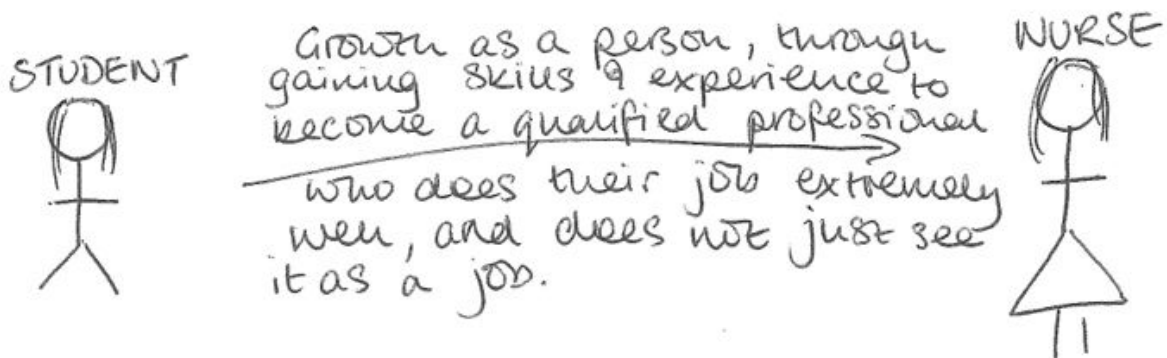 STUDENT
Growth as a person, through
gaining skills & experience to
become a qualified professional
who does their job extremely
well, and does not just see
it as a job.
NURSE